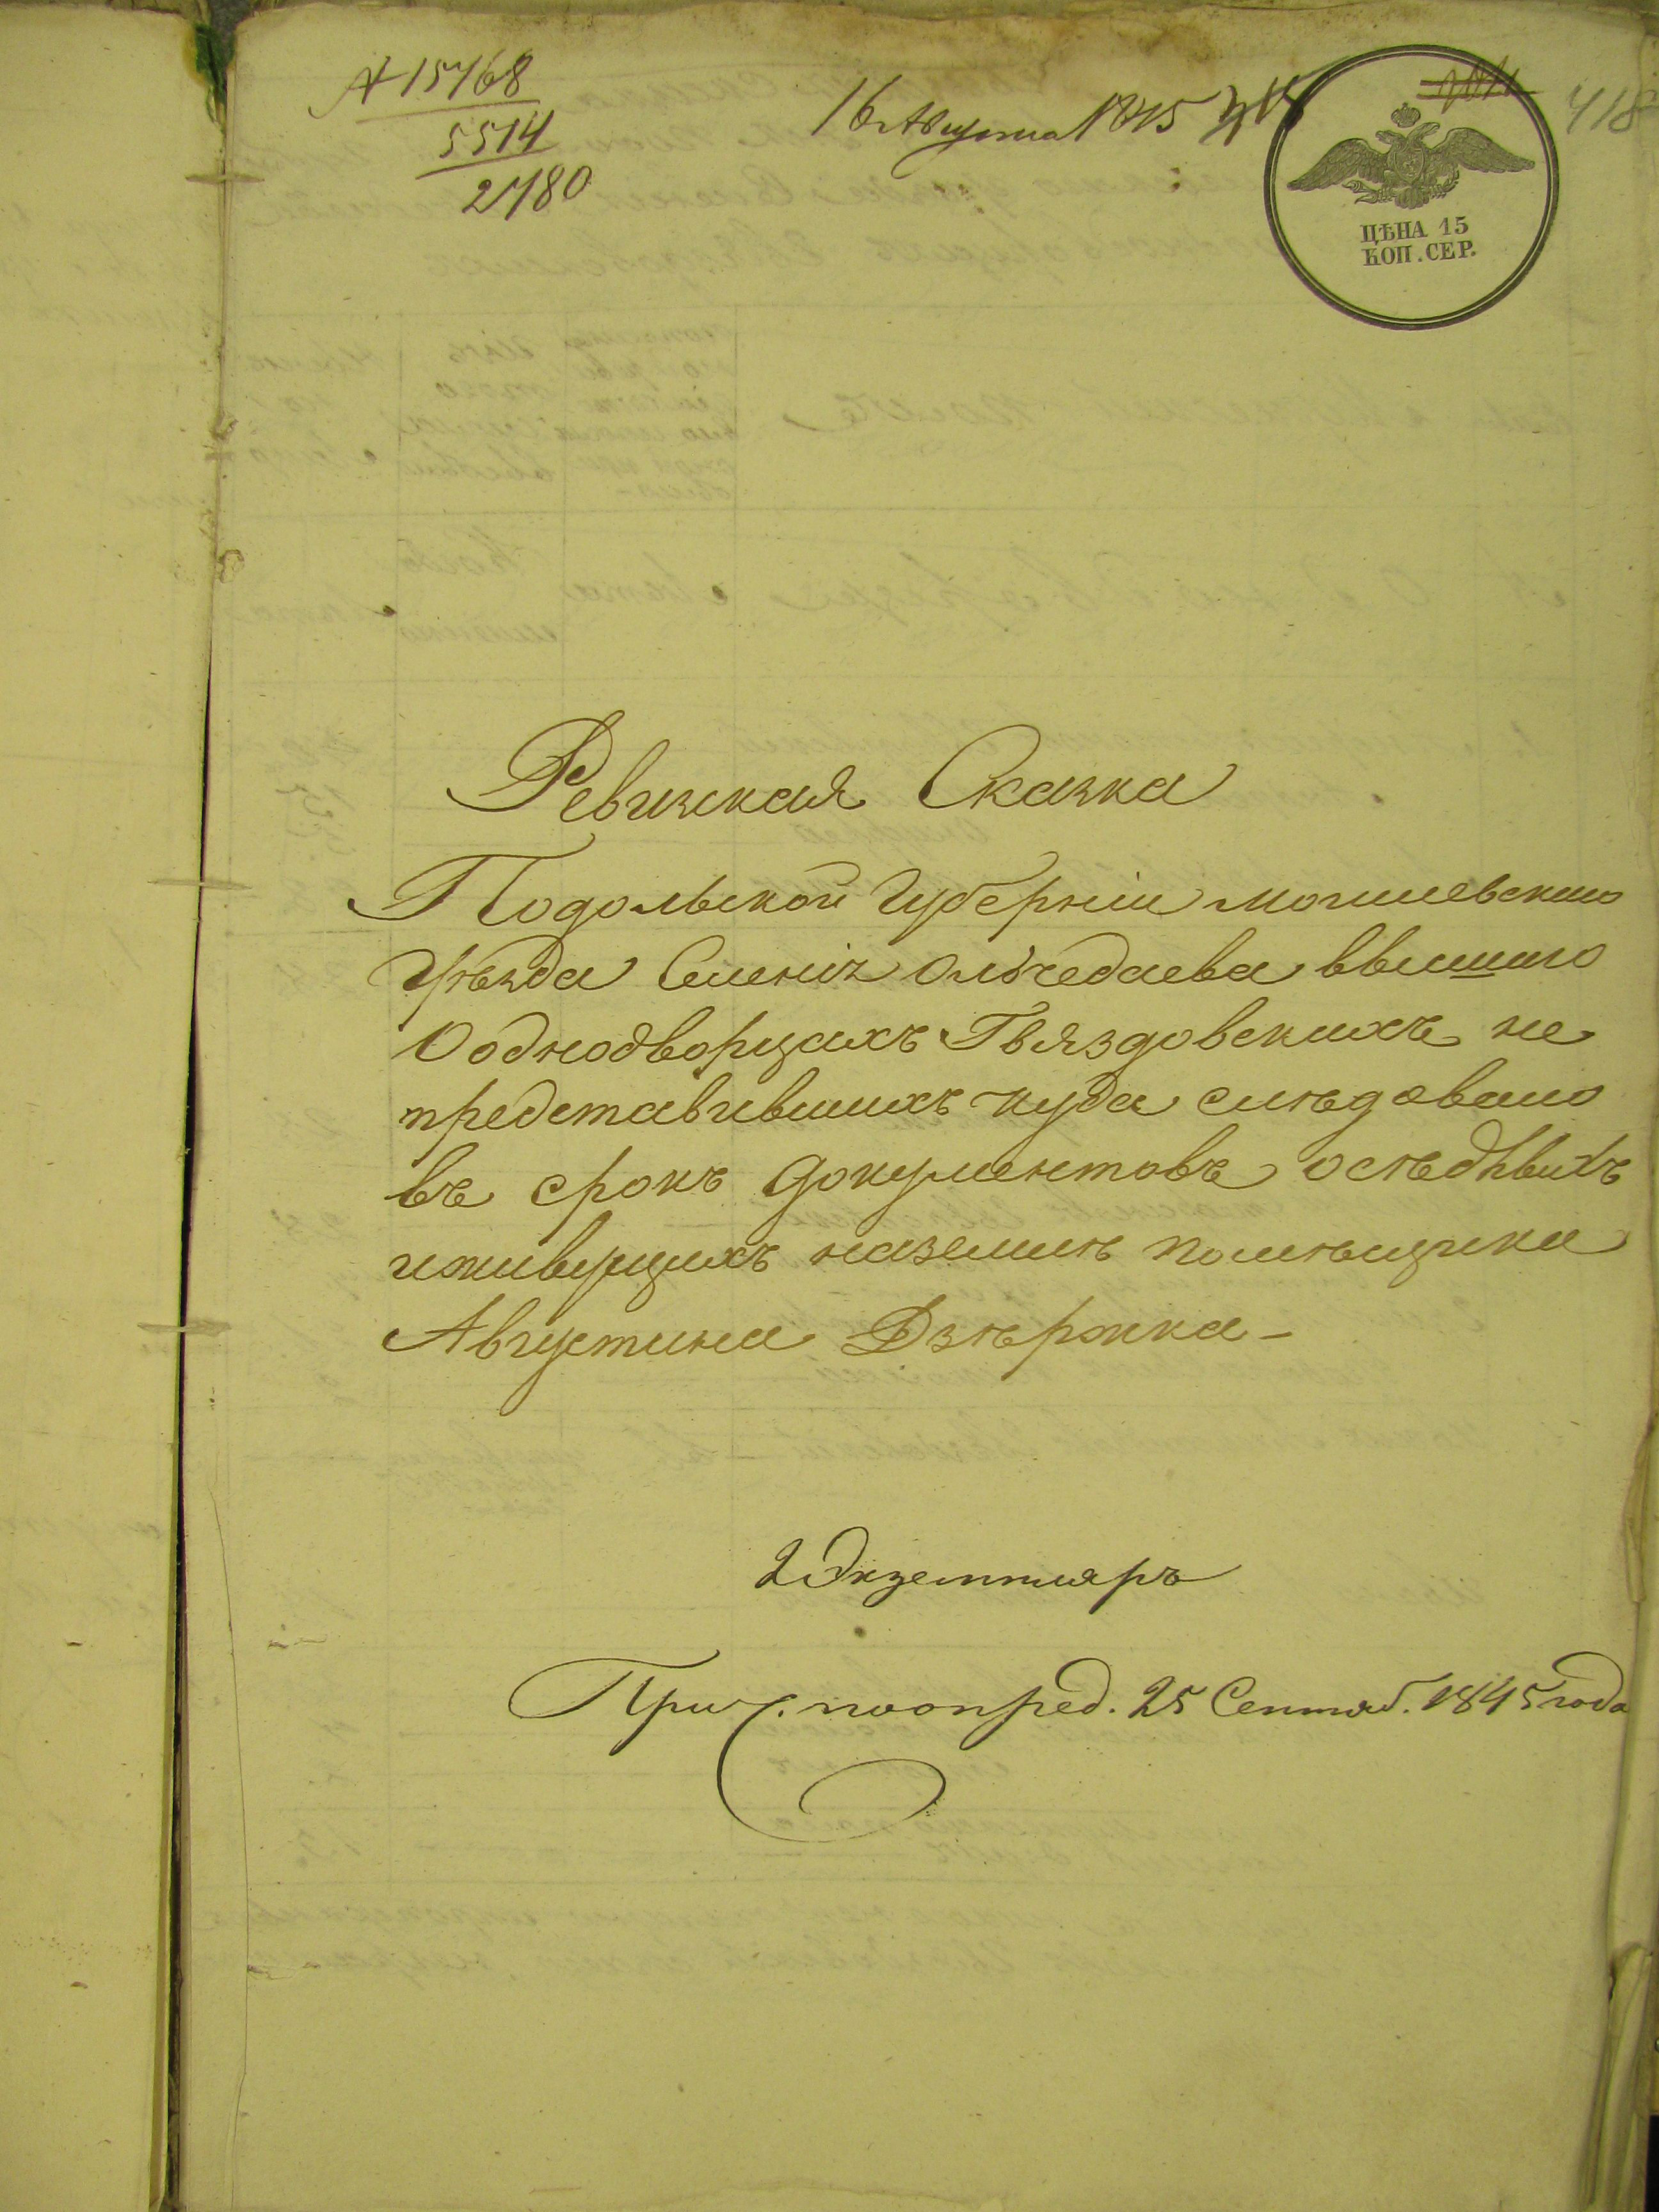 № 15768
5514
2780
16 Августа 1845
418
ЦѢНА 15
КОП. СЕР.
Ревизкая Сказка
Подольской Губерніи могилевскаго
Уѣзда Селенія Ольчедаева
О однодворцахъ Гвяздовскихъ не
представившихъ куда слѣдовало
въ срокъ документовъ осѣдлыхъ
иживущихъ наземлѣ помѣщика
Августина Дзѣржка –
2 Экземпляръ
Прич. поопред. 25 Сентяб. 1845 года